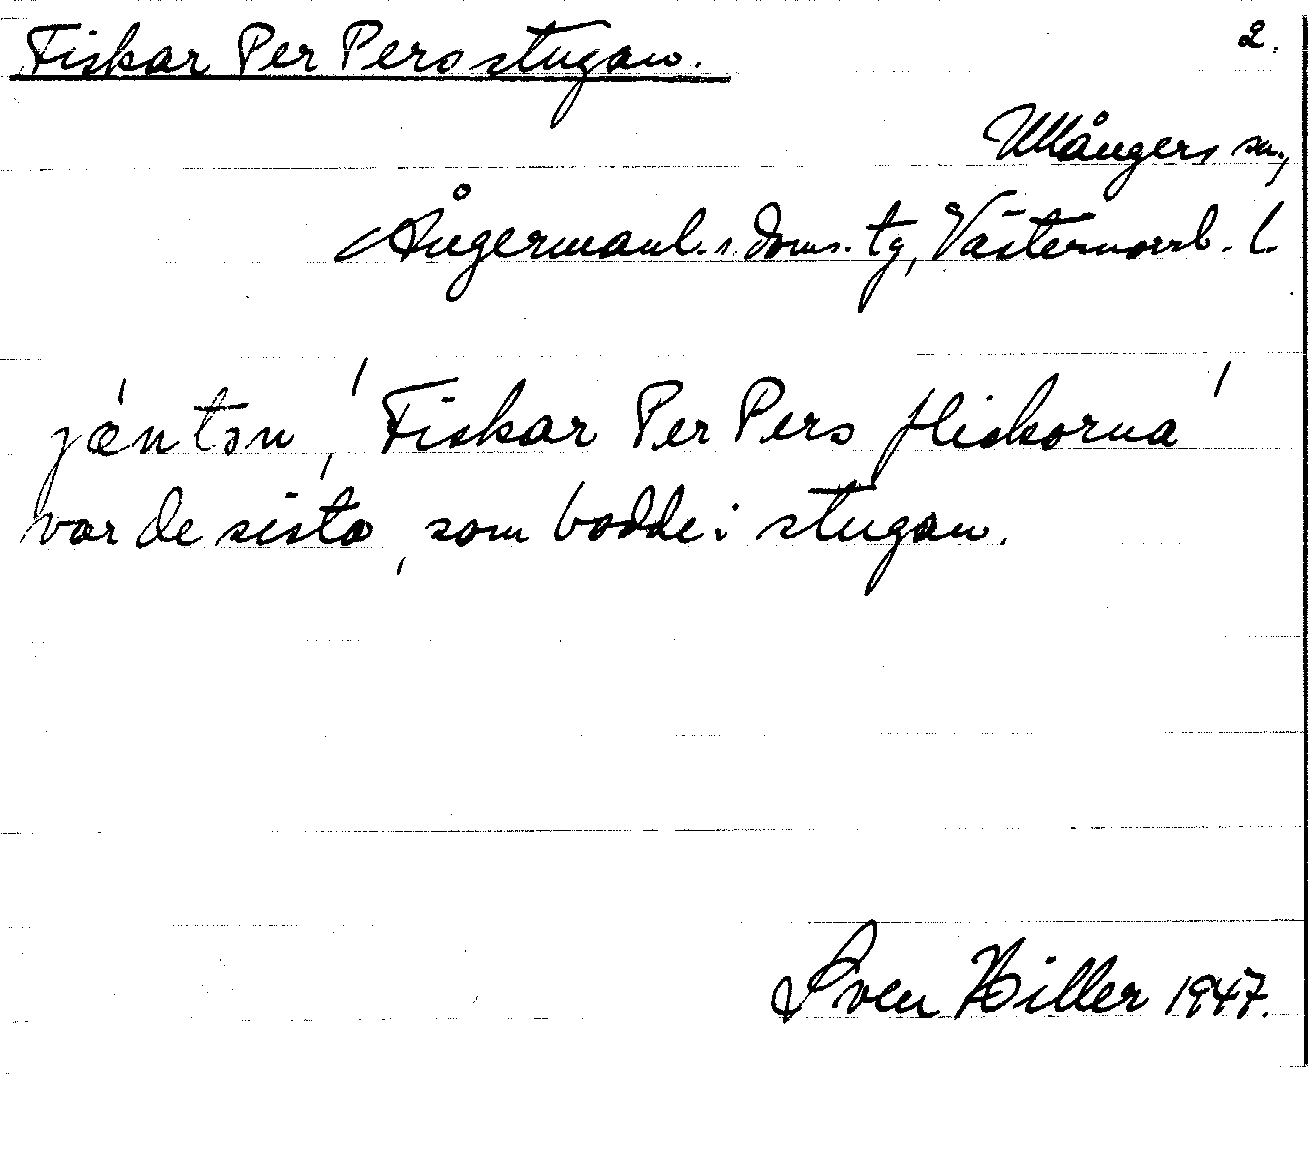 Fiskar Per Persstugan. 2.
Ullångers sn,
Ångermanl.s doms. tg, Västernorrl. l.
jæ´ntən, 'Fiskar Per Pers flickorna'
var de sista, som bodde i stugan.
Sven Hiller 1947.